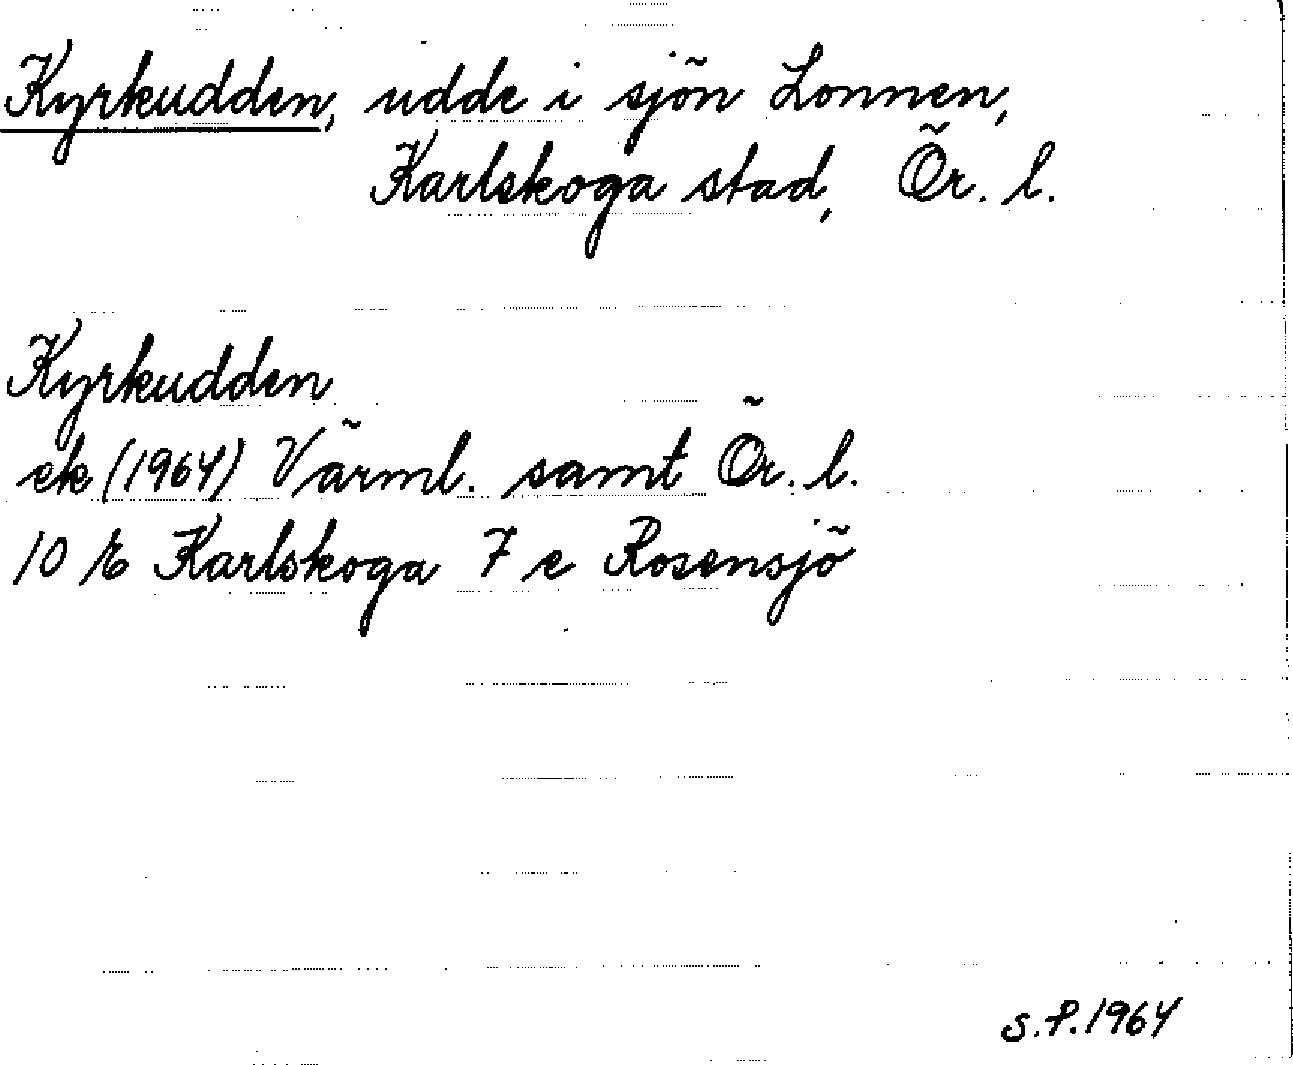 Kyrkudden, udde i sjön Lonnen,
Karlskoga stad, Ör. l.
Kyrkudden
ek (1964) Värml. samt Ör. l.
10 E Karlskoga 7 e Rosensjö
S.P. 1964